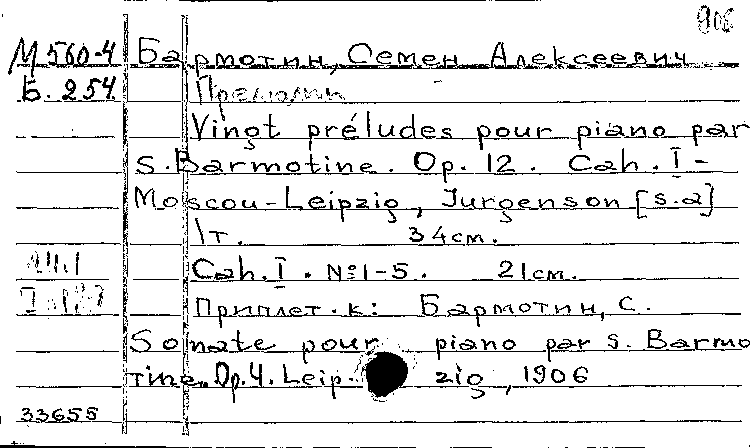 906
М 560-4 Бармотин, Семен Алексеевич
Б. 254 Прелюдии
Vingt préludes pour piano par
S. Barmotine. Op. 12. Cah. I -
Moscou-Leipzig, Jurgenson [s.a]
1т. 34см.
Cah. I. №1-5. 21см.
Приплет. к: Бармотин, С.
Sonate pour piano par S. Barmo
tine. Op. 4. Leip. zig, 1906
33655